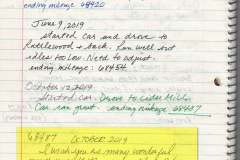 ending mileage 68420
June 9, 2019
started car and drove to
Rattlewood + back. Ran well but
idles too low. Need to adjust.
ending mileage: 68454
October 12, 2019
Started car. Drove to Cider Mill.
Car ran great. ending mileage 68487
68487 OCTOBER 2019
I wish you as many wonderful